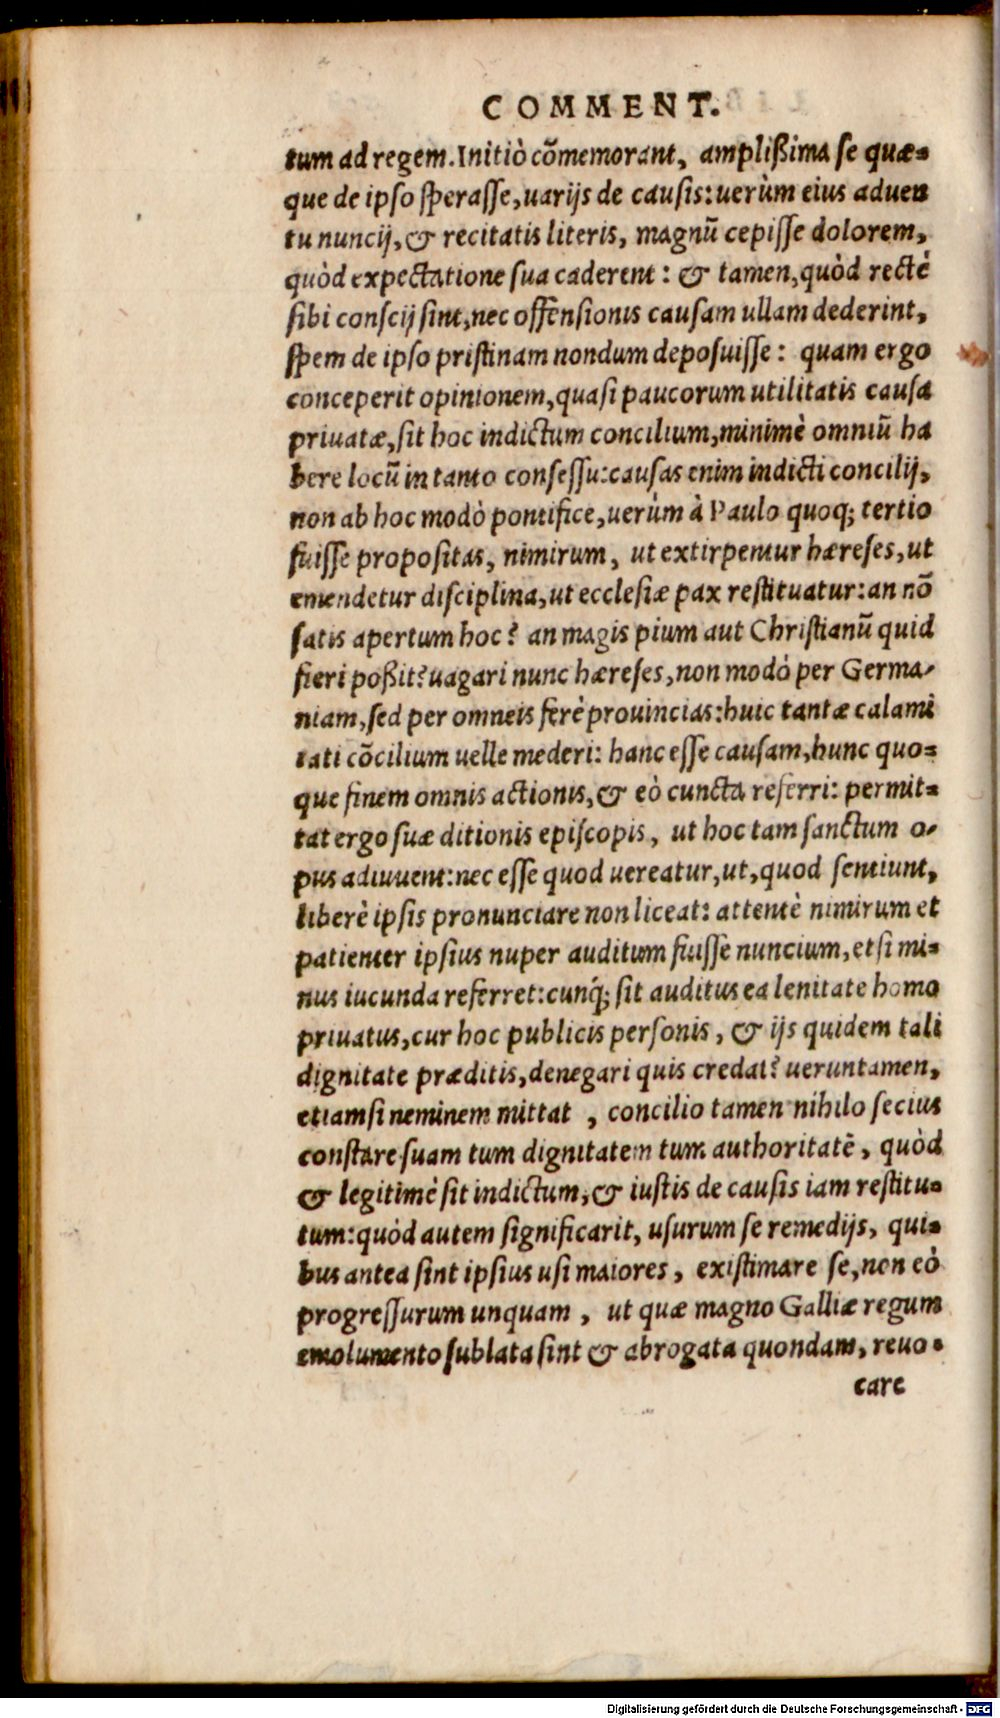 COMMENT.
tum ad regem. Initiò cõmemorant, amplißima se quæ-
que de ipso sperasse, uarijs de causis: uerùm eius aduen
tu nuncij, & recitatis literis, magnũ cepisse dolorem,
quòd expectatione sua caderent: & tamen, quòd rectè
sibi conscij sint, nec offensionis causam ullam dederint,
spem de ipso pristinam nondum deposuisse: quam ergo
conceperit opinionem, quasi paucorum utilitatis causa
priuatæ, sit hoc indictum concilium, minimè omniũ ha
bere locũ in tanto consessu: causas enim indicti concilij,
non ab hoc modò pontifice, uerùm à Paulo quoq; tertio
fuisse propositas, nimirum, ut extirpentur hæreses, ut
emendetur disciplina, ut ecclesiæ pax restituatur: an nõ
satis apertum hoc? an magis pium aut Christianũ quid
fieri poßit? uagari nunc hæreses, non modò per Germa-
niam, sed per omneis ferè prouincias: huic tantæ calami
tati cõcilium uelle mederi: hanc esse causam, hunc quo-
que finem omnis actionis, & eò cuncta referri: permit-
tat ergo suæ ditionis episcopis, ut hoc tam sanctum o-
pus adiuuent: nec esse quod uereatur, ut, quod sentiunt,
liberè ipsis pronunciare non liceat: attentè nimirum et
patienter ipsius nuper auditum fuisse nuncium, etsi mi-
nus iucunda referret: cunq́; sit auditus ea lenitate homo
priuatus, cur hoc publicis personis, & ijs quidem tali
dignitate præditis, denegari quis credat? ueruntamen,
etiamsi neminem mittat, concilio tamen nihilo secius
constare suam tum dignitatem tum authoritatẽ, quòd
& legitimè sit indictum, & iustis de causis iam restitu-
tum: quòd autem significarit, usurum se remedijs, qui-
bus antea sint ipsius usi maiores, existimare se, non eò
progressurum unquam, ut quæ magno Galliæ regum
emolumento sublata sint & abrogata quondam, reuo-
care
Digitalisierung gefördert durch die Deutsche Forschungsgemeinschaft - DFG